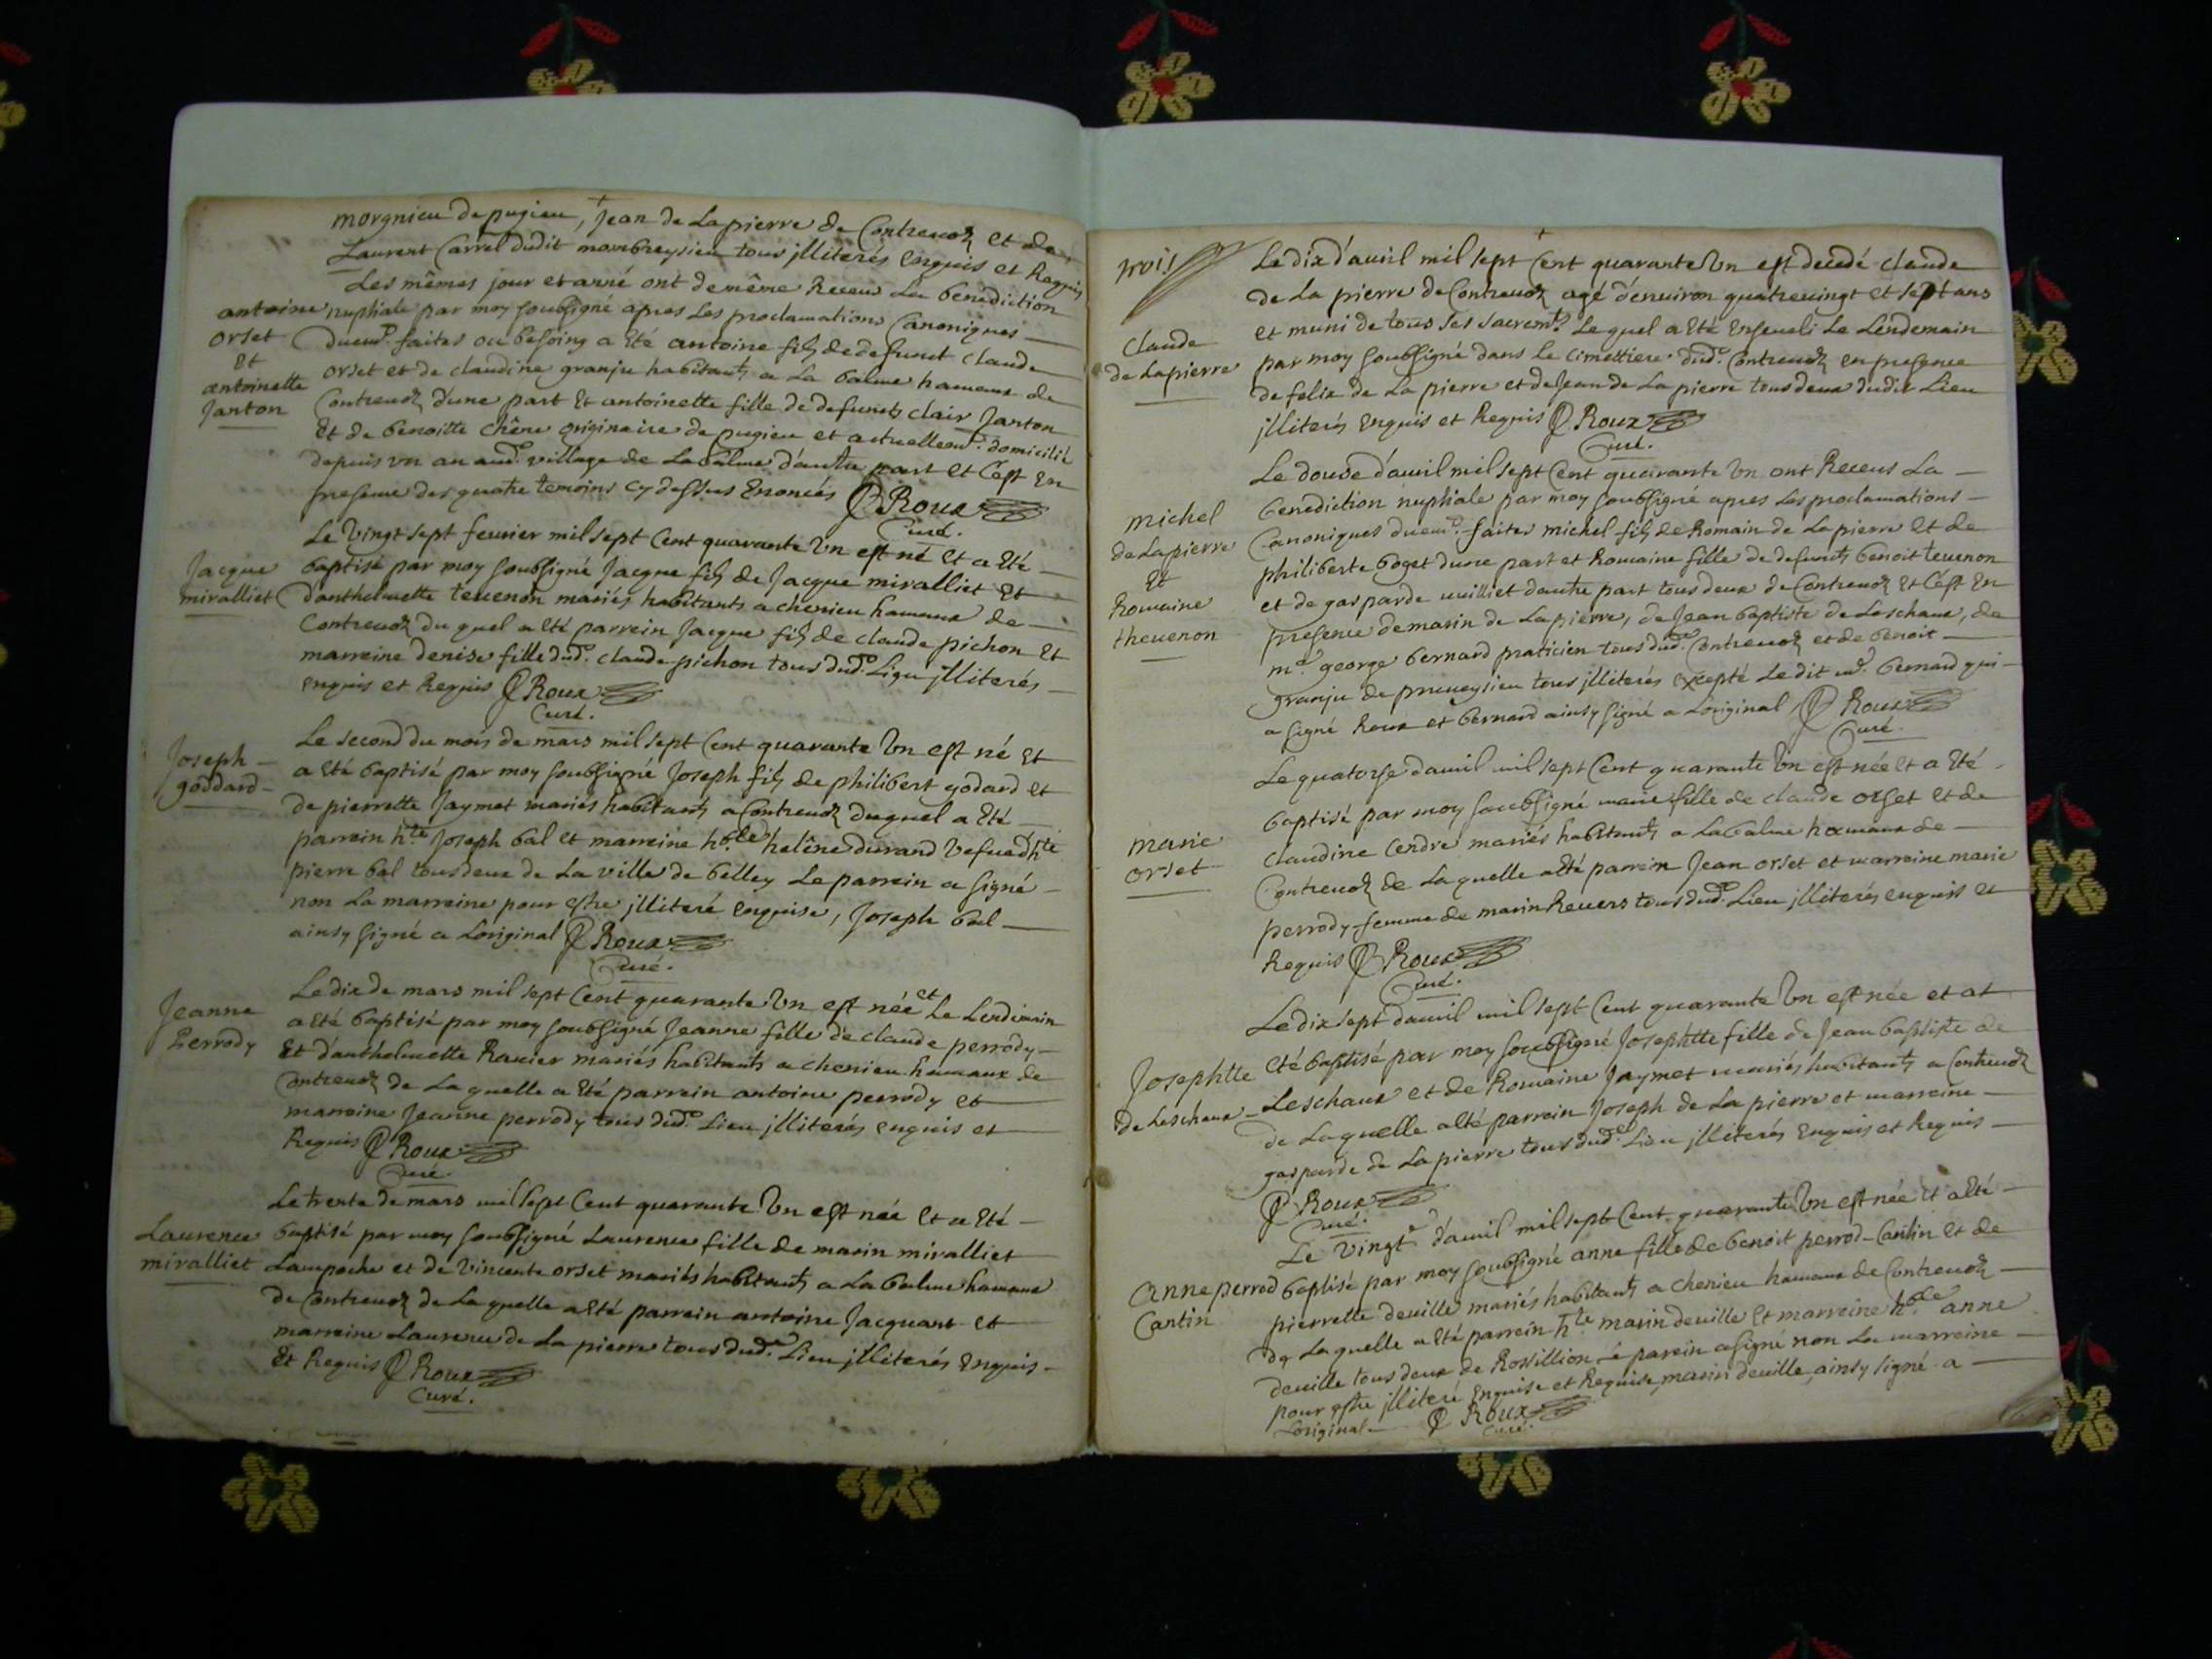 morgnieu de pugieu, Jean de Lapierre de Contrevoz et de
Laurent Carrel dudit nombreysieu tous jlliterés Enquis et Requis
Les mêmes jour et anné ont de même Receu La benediction
nuphiale par moy soubsigné apres Les proclamations Canoniques
duemt. faites ou besoing a Eté antoine fils de defunct claude
orset et de claudine granju habitants a La balme hameau de
Contrevoz d'une part Et antoinette fille de defuncts clair Janton
Et de benoitte chêne originaire de pugieu et actuellemt. domicilié
depuis vn an aud. village de La balme d'autre part et C'est En
presence des quatre temoins cy dessus Enoncés Roux
Curé.
antoine
orset
Et
antoinette
Janton
Le Vingt sept fevrier mil sept Cent quarante Vn est né Et a Eté
baptisé par moy soubsigné Jacque fils de Jacque miralliet Et
d'anthelmette tevenon mariés habitants a chenieu hameau de
Contrevoz du quel a Eté parrein Jacque fils de claude pichon Et
marreine denise fille dud. claude pichon tous dud. Lieu jlliterés
Enquis et Requis Roux
Curé.
Jacque
miralliet
Le second du mois de mars mil sept Cent quarante Vn est né Et
a Eté baptisé par moy soubsigné Joseph fils de philibert godard et
de pierrette Jaymet mariés habitants a Contrevoz duquel a Eté
parrein hte. Joseph bal Et marreine hble. helêne durand Vefue d'hte
pierre bal tous deux de La ville de belley Le parrein a signé
non La marreine pour estre jlliteré enquise, Joseph bal
ainsy signé a Loriginal Roux
Curé.
Joseph
goddard
Le dix de mars mil sept Cent quarante Vn est née et Le Lendemain
a Eté baptisé par moy soubsigné Jeanne fille de claude perrody
Et d'anthelmette Ravier mariés habitants a chenieu hameaux de
Contrevoz de La quelle a Eté parrein antoine perrody et
marreine Jeanne perrody tous dud. Lieu jlliterés enquis et
Requis Roux
Curé.
Jeanne
Perrody
Le trente de mars mil sept Cent quarante Vn est née Et a Eté
baptisé par moy soubsigné Laurence fille de marin miralliet
Lampoche et de Vincente orset mariés habitants a La balme hameau
de Contrevoz de La quelle a Eté parrein antoine Jacquant et
marreine Laurence de La pierre tous dud. Lieu jlliterés Enquis
Et Requis Roux
Curé.
Laurence
miralliet
trois
Le dix d'avril mil sept Cent quarante Vn est decedé claude
de La pierre de Contrevoz agé d'environ quatrevingt et sept ans
et muni de tous ses sacremts. Le quel a Eté Enseveli Le Lendemain
par moy soubsigné dans le cimettiere dud. Contrevoz en presence
de felix de La pierre et de Jean de La pierre tous deux dudit Lieu
jlliterés Enquis et Requis Roux
Curé.
Claude
de Lapierre
Le douse d'avril mil sept Cent quarante Vn ont Receus La
benediction nuphiale par moy soubsigné apres Les proclamations
Canoniques duemt. faites michel fils de Romain de Lapierre Et de
philiberte boget d'une part et Romaine fille de defuncts benoit tevenon
et de gasparde milliet d'autre part tous deux de Contrevoz Et C'est En
presence de marin de Lapierre, de Jean baptiste de Leschaux, de
me. george bernard praticien tous dud. Contrevoz et de benoit
granju de prmeysieu tous jlliterés excepté Ledit me. bernard qui
a signé Roux et bernard ainsy signé a Loriginal Roux
Curé.
michel
de Lapierre
Et
Romaine
thevenon
Le quatorse d'avril mil sept Cent quarante Vn est née Et a Eté
baptisé par moy soubsigné marie fille de claude orset et de
claudine Cendre mariés habitants a La balme hameaux de
Contrevoz de La quelle a Eté parrein Jean orset et marreine marie
perrody femme de marin Revers tous dud. Lieu jlliterés enquis et
Requis Roux
Curé.
marie
orset
Le dix sept d'avril mil sept Cent quarante Vn est née et at
Eté baptisé par moy soubsigné Josephtte fille de Jean baptiste de
Leschaux et de Romaine Jaymet mariés habitants a Contrevoz
de La quelle a Eté parrein Joseph de La pierre et marreine
gasparde de La pierre tous dud. Lieu jlliterés Enquis et Requis
Roux
Curé.
Josephtte
de Leschaux
Le Vingt d'avril mil sept Cent quarante Vn est née Et a Eté
baptisé par moy soubsigné anne fille de benoit perrod-Cantin Et de
pierrette deville mariés habitants a chenieu hameau de Contrevoz
de La quelle a Eté parrein hte. marin deville Et marreine hble. anne
deville tous deux de Rossillion Le parein a signé non La marreine
pour estre jlliteré Enquise et Requise, marin deville, ainsy signé a
Loriginal Roux
Curé.
Anne perrod
Cantin